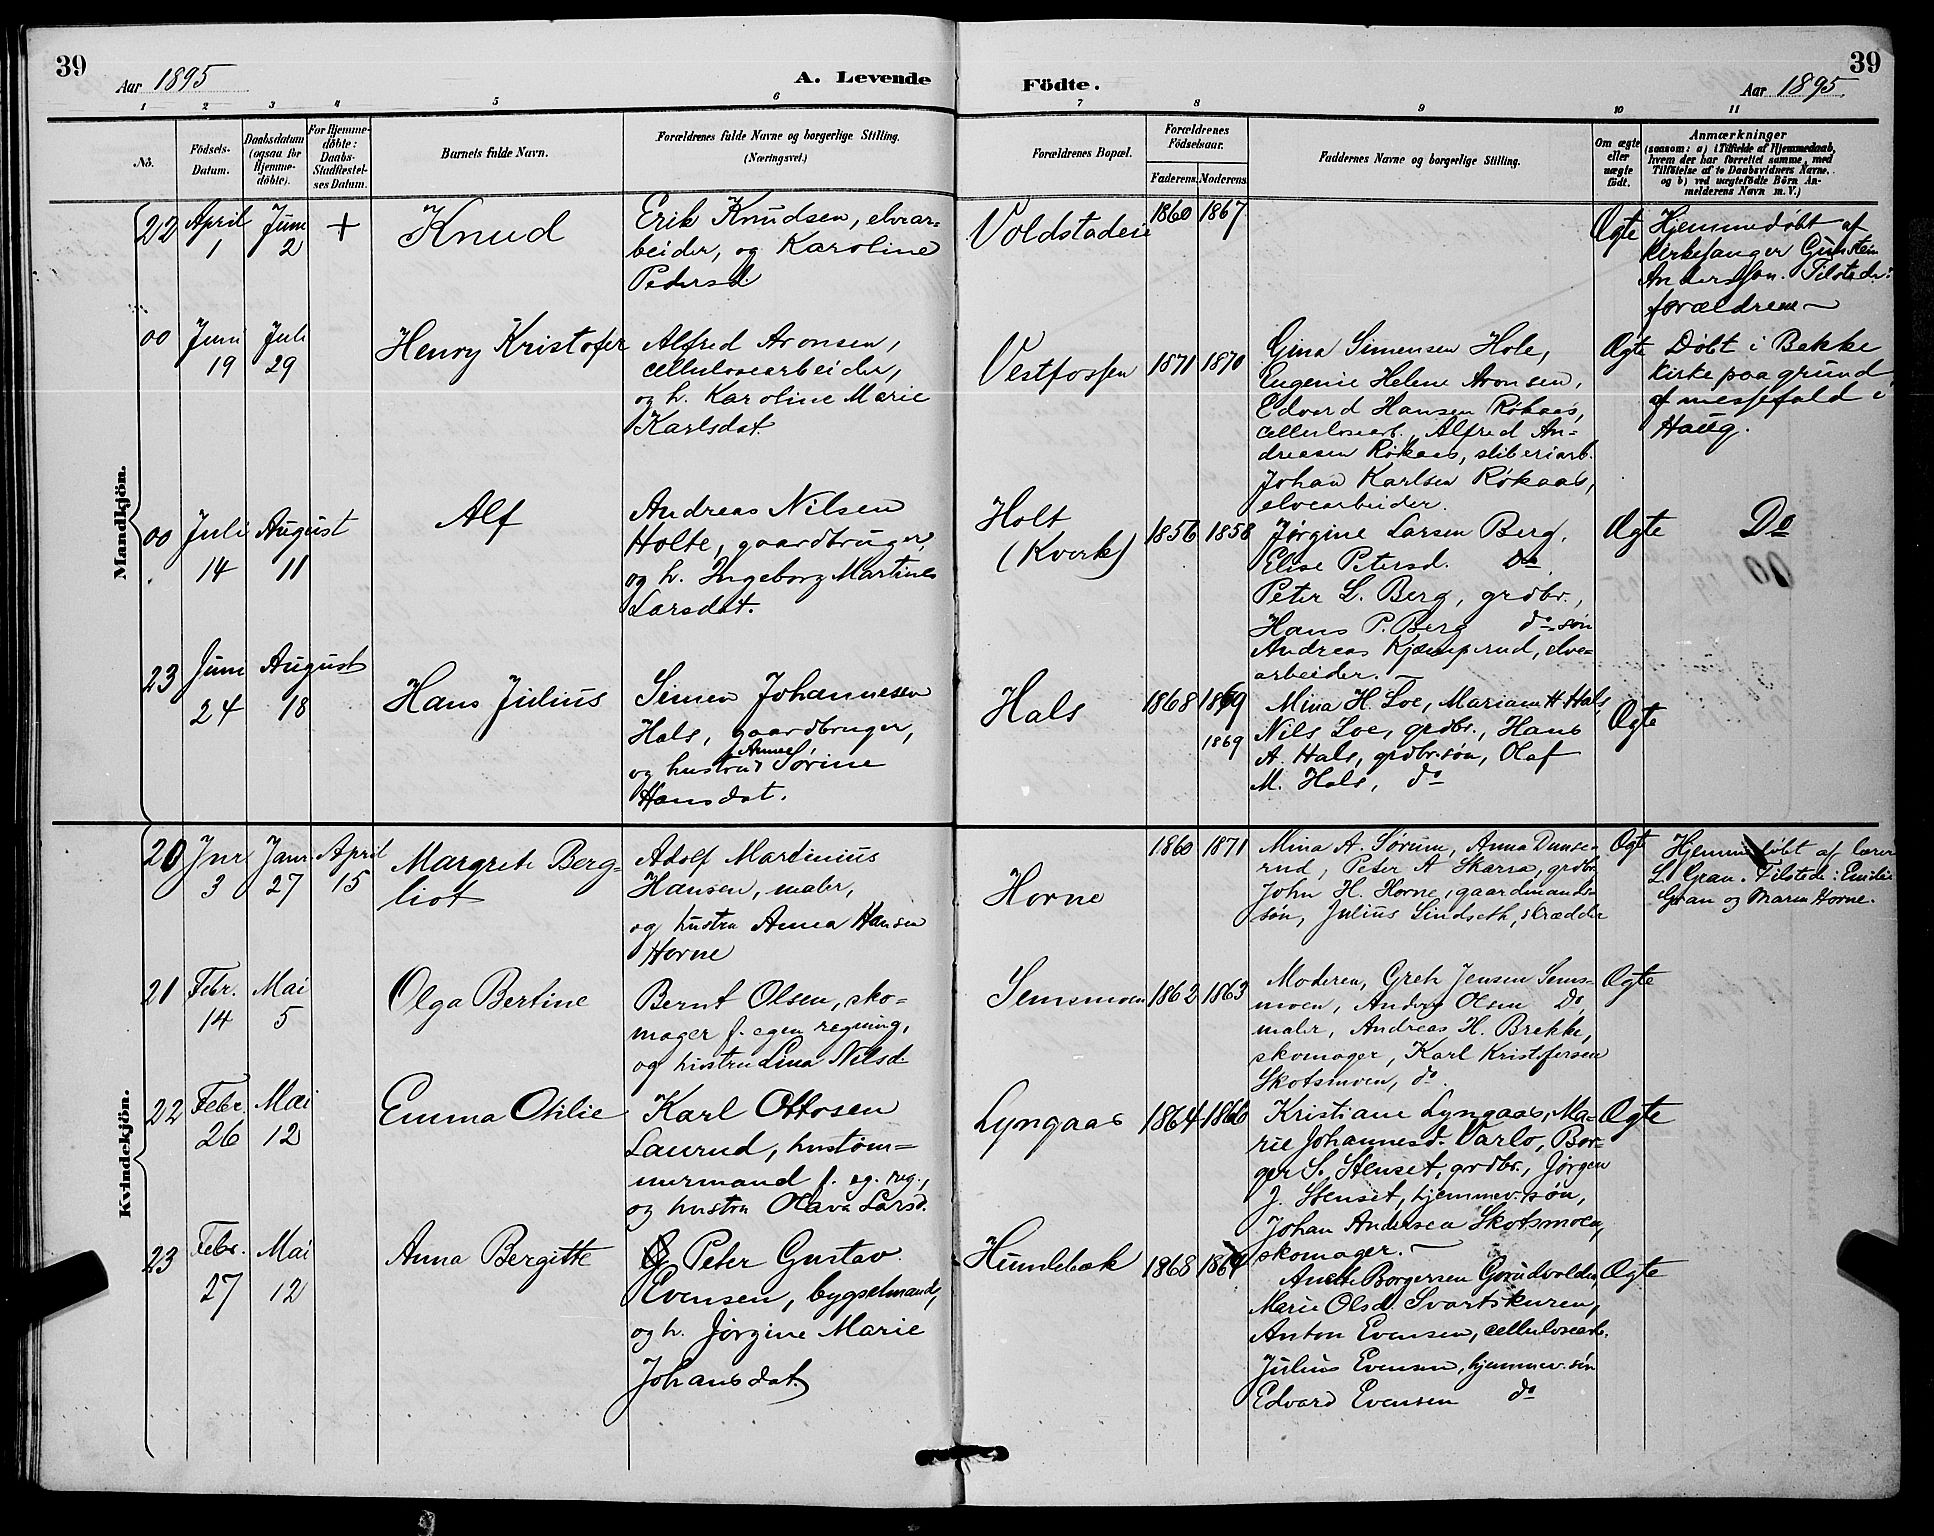 39
Aar 1895
A. Levende
Födte.
Aar 1895.
39
1 2 3 4 5 6 7 8 9 10 11
No.
Födsels-
Datum.
Daabsdatum
(ogsaa for
Hjemme-
döbte).
For Hjemme-
döbte:
Daabs-
Stadfæstel-
ses Datum.
Barnets fulde Navn.
Forældrenes fulde Navne og borgerlige Stilling.
(Næringsvei.)
Forældrenes Bopæl.
Forældrenes
Födselsaar.
Faderens. Moderens.
Faddernes Navne og borgerlige Stilling.
Om ægte
eller
uægte
födt.
Anmærkninger
(saasom: a) i Tilfælde af Hjemmedaab,
hvem der har forrettet samme, med
Tilföielse af to Daabsvidners Navne,
og b) ved uægtefödte Börn An-
melderens Navn m. V.)
Mandkjön.
22 April 1 Juni 2 +
Knud
Erik Knudsen, elvear-
beider, og Karoline
Pedersd.
Voldstadeie
1860 1867
Ægte
Hjemmedøbt af
kirkesanger Gunstein
Anderssøn. Tilstede:
forældrene —
00 Juni 19 Juli 29
Henry Kristofer
Alfred Aronsen,
cellulosearbeider,
og h. Karoline Marie
Karlsdat.
Vestfossen
1871 1870
Gina Simensen Hole,
Eugenie Helene Aronsen,
Edvard Hansen Røkaas,
cellulosearb., Alfred An-
dreasen Røkaas, sliberiarb.
Johan Karlsen Røkaas,
elvearbeider.
Ægte
Døbt i Bakke
kirke paa grund
af messefald i
Haug.
00 Juli 14 August 11
Alf
Andreas Nilsen
Holte, gaardbruger,
og h. Ingeborg Martines
Larsdat.
Holt
(Kverk)
1856 1858
Jørgine Larsen Berg,
Elise Petersd. Do,
Peter L. Berg, grdbr.,
Hans P. Berg do søn
Andreas Kjæmperud, elve-
arbeider. —
Ægte
Do
23 Juni 24 August 18
Hans Julius
Simen Johannesen
Hals, gaardbruger,
Anne
og hustru Sørine
Hansdat.
Hals
1868 1869
1869
Mina H. Loe, Mariam H. Hals
Nils Loe, grdbr., Hans
A. Hals, grdbr.søn, Olaf
M. Hals, do
Ægte
Kvindekjön.
20 Jnr 3 Janr. 27 April 15
Margrete Berg-
liot
Adolf Martinius
Hansen, maler,
og hustru Anna Hansen
Horne
Horne
1860 1871
Mina A. Sørum, Anna Dunse-
rud, Peter A Skarra, grdbr.
John H. Horne, gaardmands-
søn, Julius Lindseth, skrædder
Ægte
Hjemmedøbt af lærer
L. Gran. Tilstede: Emilie
Gran og Maren Horne.
21 Febr. 14 Mai 5
Olga Bertine
Bernt Olsen, sko-
mager f. egen regning,
og hustru Lina Nilsd.
Semsmoen
1862 1863
Moderen, Greth Jensen Sems-
moen, Anders Olsen Do,
maler, Andreas H. Brekke,
skomager, Karl Kristofersen
Skotsmoen, do.
Ægte
22 Febr. 26 Mai 12
Emma Otilie
Karl Ottosen
Laurud, hustøm-
mermand f. eg. reg.,
og hustru Olava Larsd.
Lyngaas
1864 1866
Kristiane Lyngaas, Ma-
rie Johannesd. Varlo, Bor-
ger S. Stenset, grdbr., Jørgen
J. Stenset, hjemmev. søn,
Johan Andersen Skotsmoen,
skomager. —
Ægte
23 Febr. 27 Mai 12
Anna Bergitte
Peter Gustav
Evensen, bygselmand,
og h. Jørgine Marie
Johansdat.
Hundebæk
1868 1864
Anette Borgersen Gorudvolden,
Marie Olsd. Svartskuren,
Anton Evensen, cellulosearb.
Julius Evensen, hjemmev. søn
Edvard Evensen do
Ægte